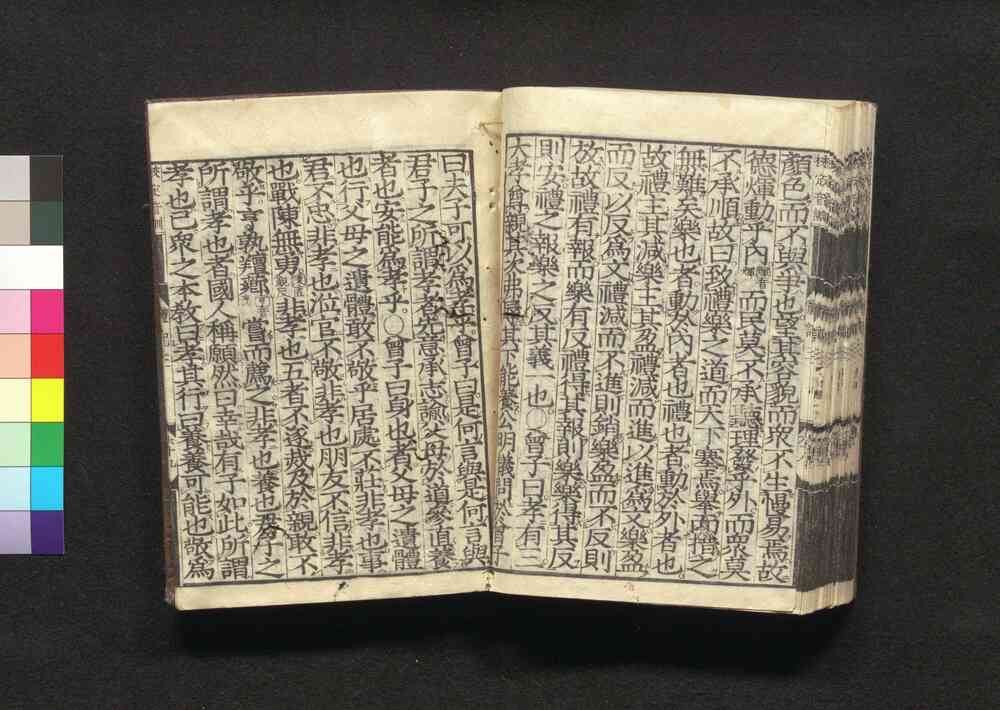 顏色而不與爭也望其容貌而衆不生慢易焉故
德煇動乎內而民莫不承聽理發乎外而衆莫
不承順故曰致禮樂之道而天下塞焉舉而措之
無難矣樂也者動於內者也禮也者動於外者也
故禮主其減樂主其盈禮減而進以進爲文樂盈
而反以反爲文禮減而不進則銷樂盈而不反則
放故禮有報而樂有反禮得其報則樂樂得其反
則安禮之報樂之反其義一也○曾子曰孝有三
大孝尊親其次弗辱其下能養公明儀問於曾子
曰夫子可以爲孝乎曾子曰是何言與是何言與
君子之所謂孝者先意承志諭父母於道參直養
者也安能爲孝乎○曾子曰身也者父母之遺體
也行父母之遺體敢不敬乎居處不莊非孝也事
君不忠非孝也涖官不敬非孝也朋友不信非孝
也戰陳無勇非孝也五者不遂烖及於親敢不
敬乎亨孰羶薌嘗而薦之非孝也養也君子之
所謂孝也者國人稱願然曰幸哉有子如此所謂
孝也已衆之本敎曰孝其行曰養養可能也敬爲